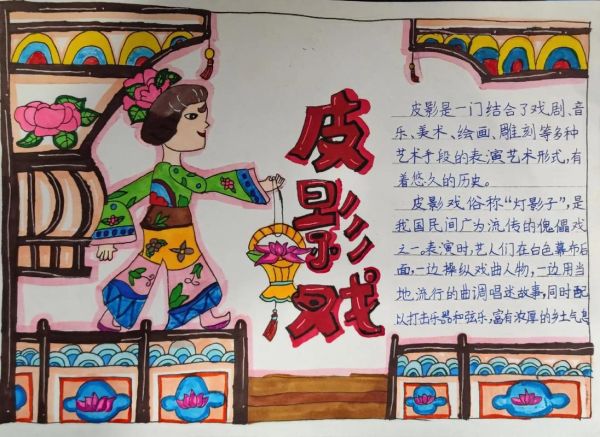 皮影戏
皮影是一门结合了戏剧、音
乐、美术、绘画、雕刻等多种
艺术手段的表演艺术形式,有
着悠久的历史。
皮影戏俗称“灯影子”,是
我国民间广为流传的傀儡戏
之一。表演时,艺人们在白色幕布后
面,一边操纵戏曲人物,一边用当
地流行的曲调唱述故事,同时配
以打击乐器和弦乐,富有浓厚的乡土气息